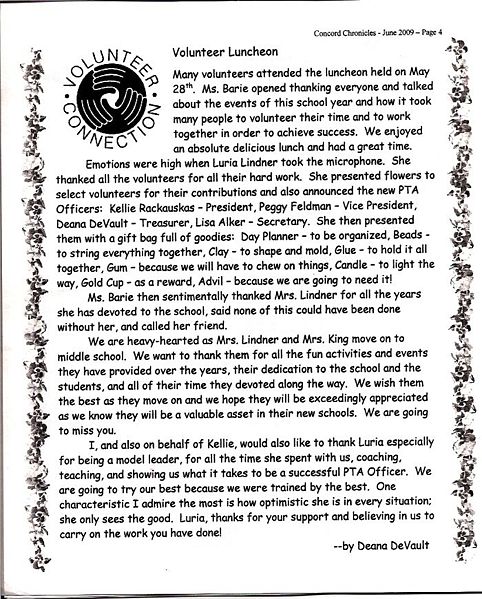 Concord Chronicles - June 2009 – Page 4
VOLUNTEER
CONNECTION
Volunteer Luncheon
Many volunteers attended the luncheon held on May
28th. Ms. Barie opened thanking everyone and talked
about the events of this school year and how it took
many people to volunteer their time and to work
together in order to achieve success. We enjoyed
an absolute delicious lunch and had a great time.
Emotions were high when Luria Lindner took the microphone. She
thanked all the volunteers for all their hard work. She presented flowers to
select volunteers for their contributions and also announced the new PTA
Officers: Kellie Rackauskas – President, Peggy Feldman – Vice President,
Deana DeVault – Treasurer, Lisa Alker – Secretary. She then presented
them with a gift bag full of goodies: Day Planner – to be organized, Beads -
to string everything together, Clay – to shape and mold, Glue – to hold it all
together, Gum – because we will have to chew on things, Candle – to light the
way, Gold Cup – as a reward, Advil – because we are going to need it!
Ms. Barie then sentimentally thanked Mrs. Lindner for all the years
she has devoted to the school, said none of this could have been done
without her, and called her friend.
We are heavy-hearted as Mrs. Lindner and Mrs. King move on to
middle school. We want to thank them for all the fun activities and events
they have provided over the years, their dedication to the school and the
students, and all of their time they devoted along the way. We wish them
the best as they move on and we hope they will be exceedingly appreciated
as we know they will be a valuable asset in their new schools. We are going
to miss you.
I, and also on behalf of Kellie, would also like to thank Luria especially
for being a model leader, for all the time she spent with us, coaching,
teaching, and showing us what it takes to be a successful PTA Officer. We
are going to try our best because we were trained by the best. One
characteristic I admire the most is how optimistic she is in every situation;
she only sees the good. Luria, thanks for your support and believing in us to
carry on the work you have done!
--by Deana DeVault